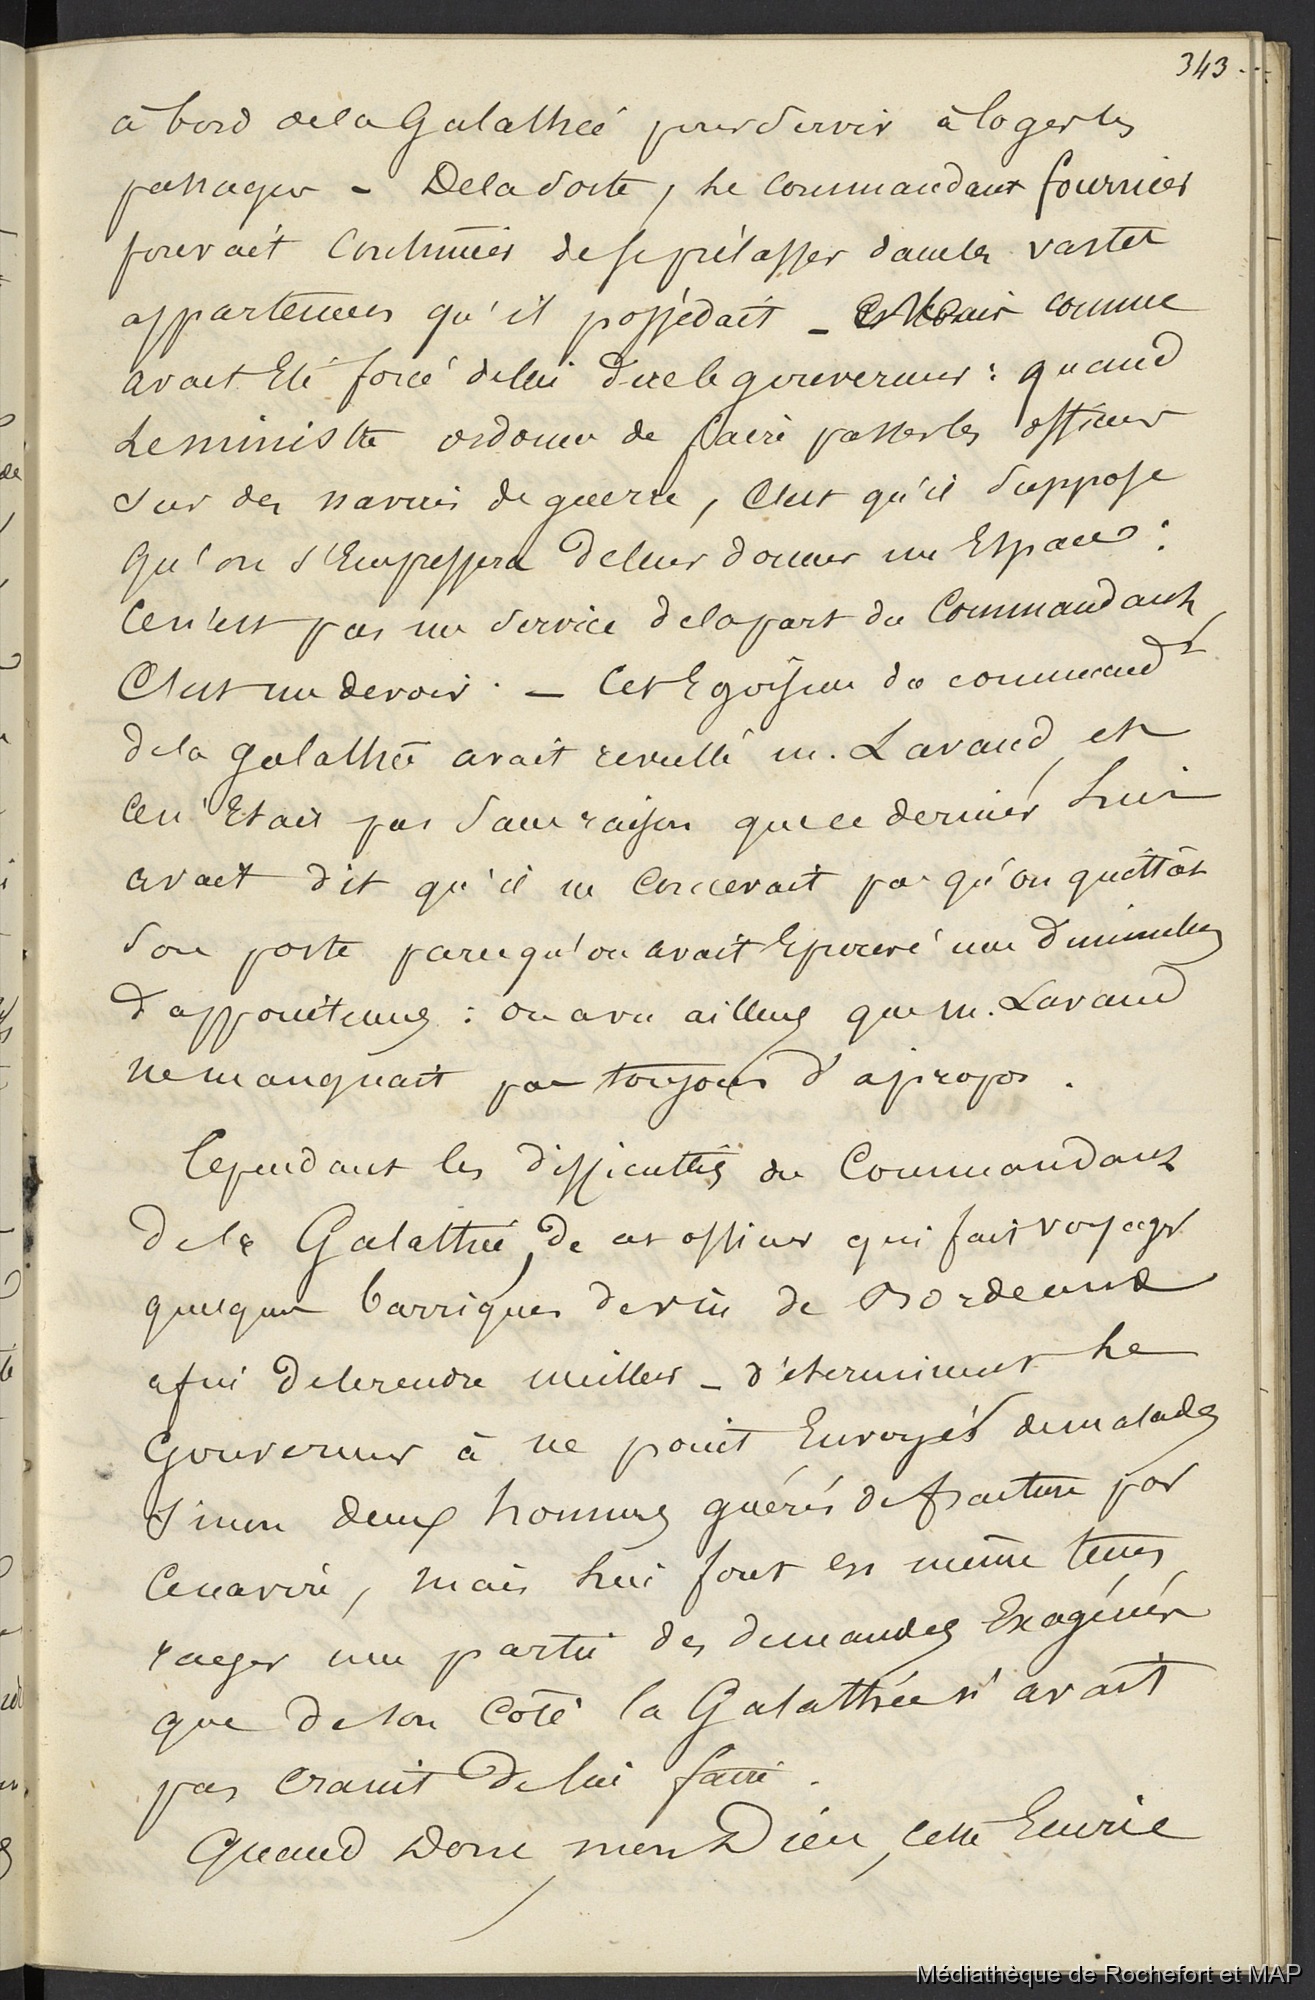 343
à bord de la Galathée pour servir à loger les
passagers - De la sorte, le commandant fournier
pouvait continuer de se prélasser dans les vastes
appartements qu'il possédait - Mais comme
avait été forcé de lui dire le gouverneur : quand
le ministre ordonne de faire passer les officiers
sur des navires de guerre, C'est qu'il suppose
qu'on s'Empressera de leur donner un Espace :
Ce n'est pas un service de la part du Commandant,
C'est un devoir. - Cet Egoïsme du command.t
de la galathée avait revolté m. Lavaud, et
Ce n'Etait pas sans raison que ce dernier lui
avait dit qu'il ne concevait pas qu'on quittât
son poste parcequ'on avait Eprouvé une diminution
d'appointemens : on a vu ailleurs que m. Lavaud
ne manquait pas toujours d'apropos.
Cependant les difficultés du Commandant
de la Galathée, de cet officier qui fait voyager
quelques barriques de vin de Bordeaux
afin de le rendre meilleur - déterminent le
Gouverneur à ne point Envoyer de malades
sinon deux hommes guéris de fracture par
ce navire, mais lui font en même tems
rayer une partie des demandes Exagérées
que de son coté la Galathée n'avait
pas craint de lui faire.
Quand donc, mon Dieu, cette Envie
Médiathèque de Rochefort et MAP